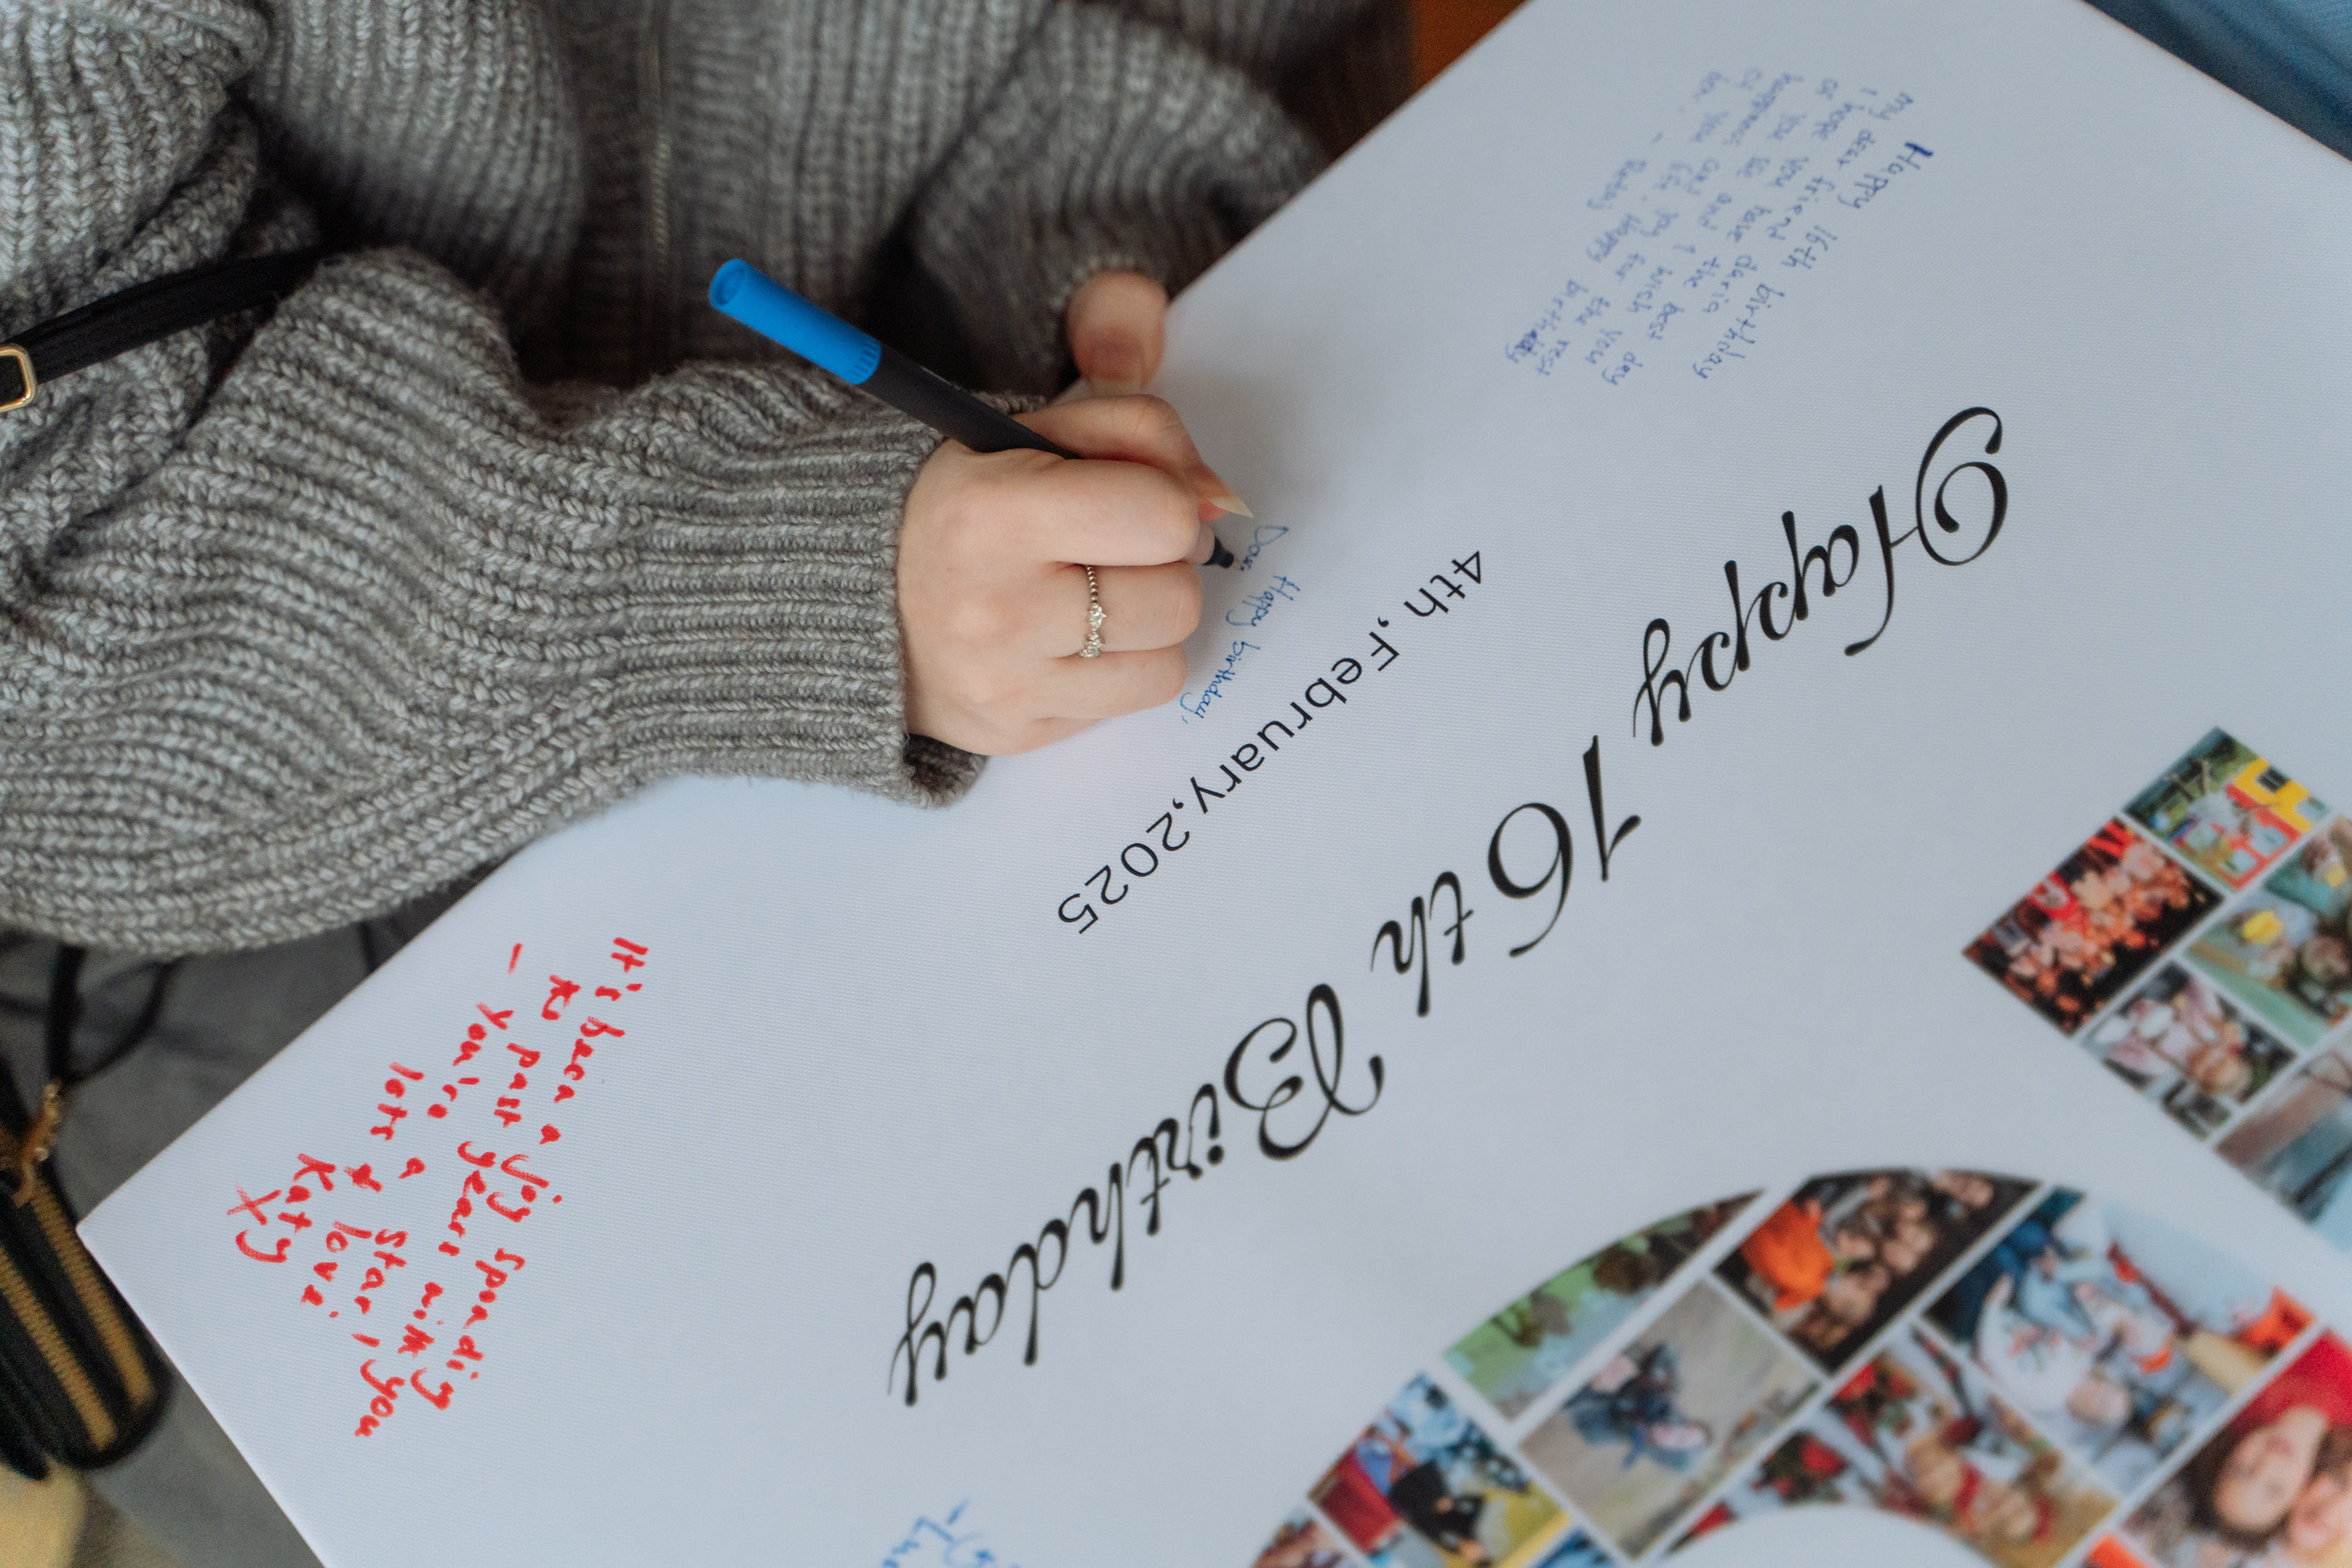 Happy 16th Birthday
4th,February,2025
Happy 16th birthday
my dear friend daria
I hope you have the best day
and I wish you
happiness joy for the rest
of you Happy birthday
Happy birthday,
It's been a joy spending
to past years with
- you're a star, you
lots & love
Katy
X